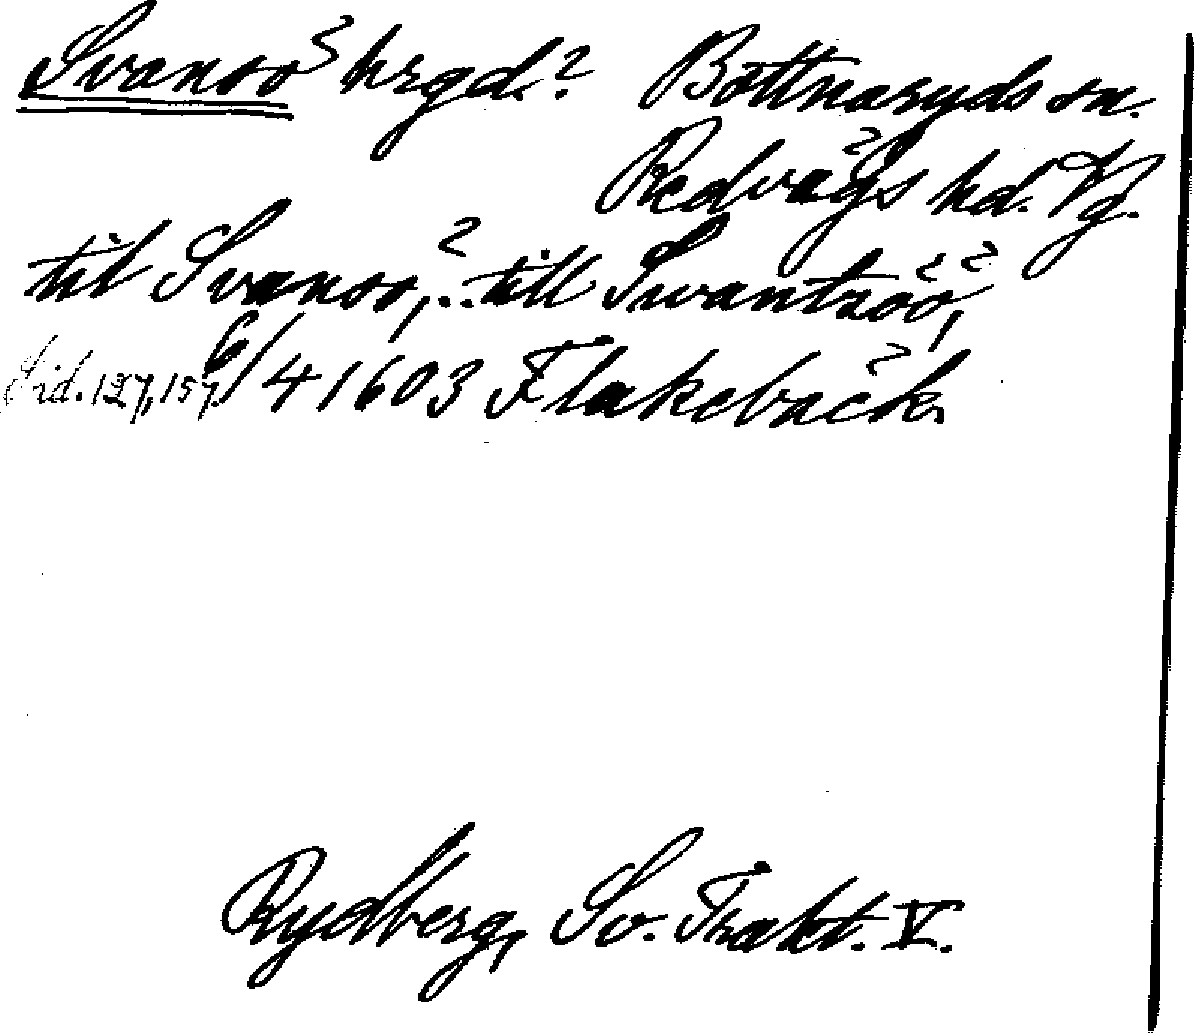 Svansö hrgd.? Bottnaryds sn.
Redvägs hd. Vg.
till Svansö, .. till Swantzöö,
Sid. 127, 157. 6/4 1603 Flakebäck.
Rydberg, Sv. Trakt. V.